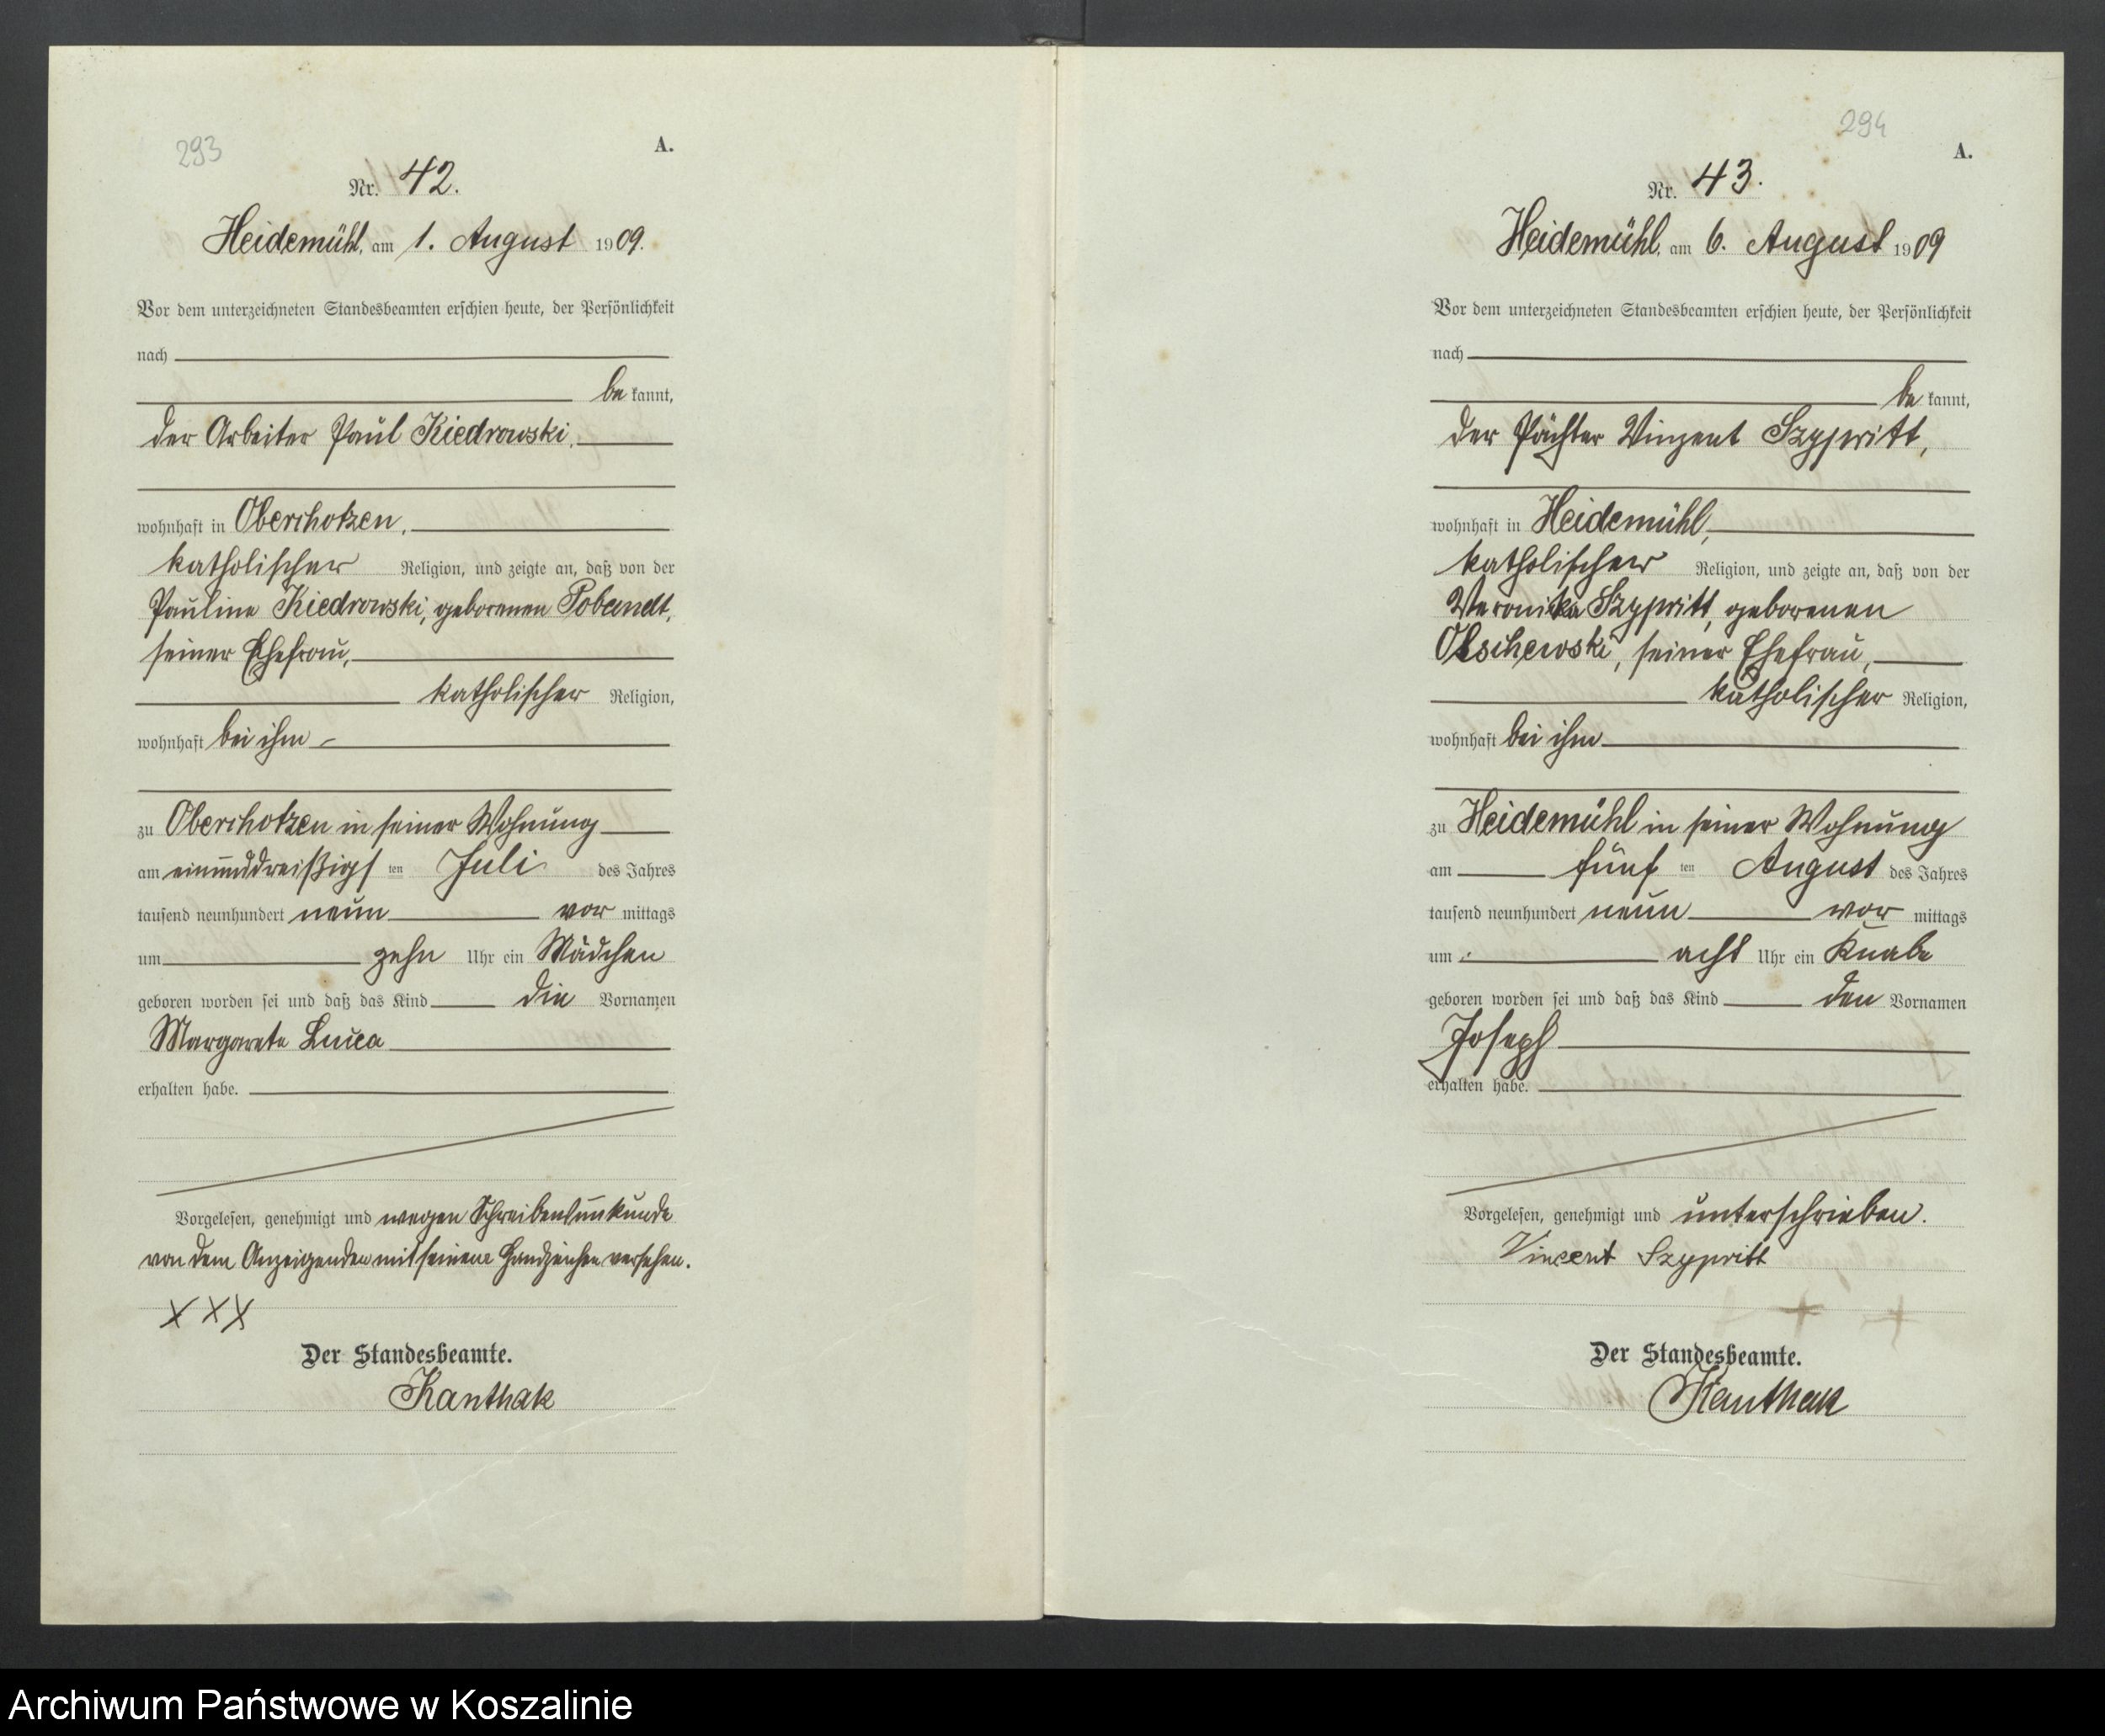 293
A.
Nr. 42.
Heidemühl, am 1. August 1909.
Vor dem unterzeichneten Standesbeamten erschien heute, der Persönlichkeit
nach
be kannt,
der Arbeiter Paul Kiedrowski,
wohnhaft in Oberchotzen,
katholischer Religion, und zeigte an, daß von der
Pauline Kiedrowski, geborenen Pobandt,
seiner Ehefrau,
katholischer Religion,
wohnhaft bei ihm
zu Oberchotzen in seiner Wohnung
am einunddreißigs ten Juli des Jahres
tausend neunhundert neun vor mittags
um zehn Uhr ein Mädchen
geboren worden sei und daß das Kind die Vornamen
Margarete
erhalten habe.
Vorgelesen, genehmigt und wegen Schreibensunkunde
von dem Anzeigenden mit seinem Handzeichen versehen.
XXX
Der Standesbeamte.
Kanthak
294
A.
Nr. 43.
Heidemühl, am 6. August 1909
Vor dem unterzeichneten Standesbeamten erschien heute, der Persönlichkeit
nach
be kannt,
der Pächter Vinzent Szypritt,
wohnhaft in Heidemühl,
katholischer Religion, und zeigte an, daß von der
Veronika Szypritt, geborenen
Olschewski, seiner Ehefrau,
katholischer Religion,
wohnhaft bei ihm
zu Heidemühl in seiner Wohnung
am fünf ten August des Jahres
tausend neunhundert neun vor mittags
um acht Uhr ein Knabe
geboren worden sei und daß das Kind den Vornamen
Joseph
erhalten habe.
Vorgelesen, genehmigt und unterschrieben.
Vincent Szypritt
Der Standesbeamte.
Kanthak
Archiwum Państwowe w Koszalinie